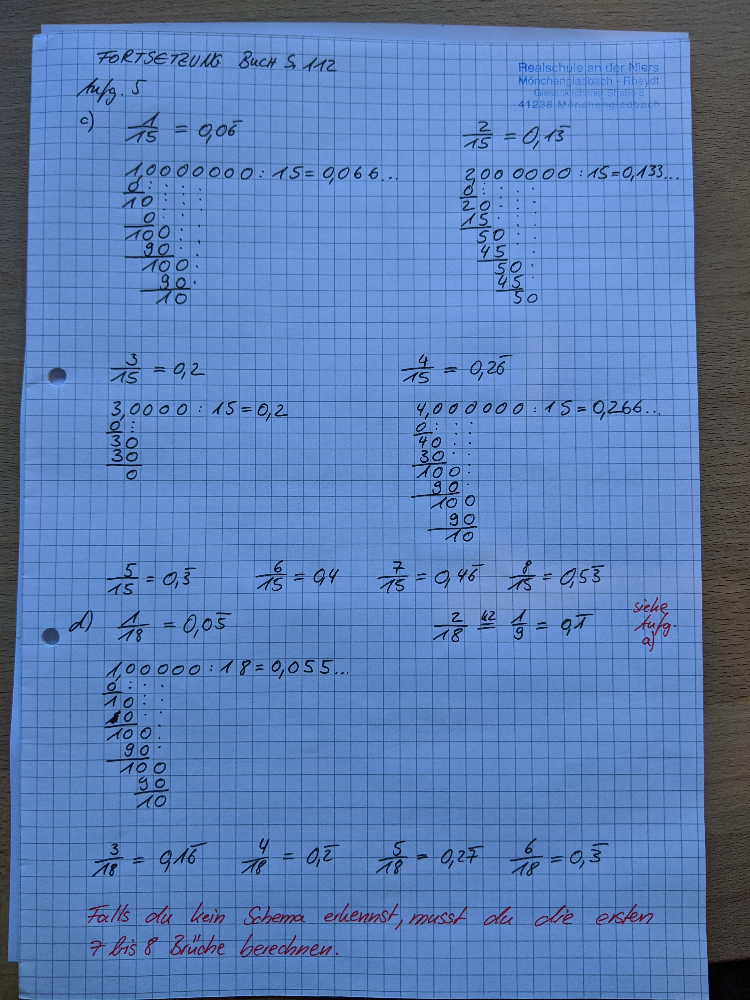 FORTSETZUNG BUCH S. 112
Realschule an der Niers
Mönchengladbach - Rheydt
41238 Mönchengladbach
Aufg. 5
c) 1/15 = 0,06̅
2/15 = 0,13̅
1,0000000 : 15 = 0,066...
0
10
0
100
90
100
90
10
2,000000 : 15 = 0,133...
0
20
15
50
45
50
45
50
3/15 = 0,2
4/15 = 0,26̅
3,0000 : 15 = 0,2
0
30
30
0
4,000000 : 15 = 0,266...
0
40
30
100
90
100
90
10
5/15 = 0,3̅ 6/15 = 0,4 7/15 = 0,46̅ 8/15 = 0,53̅
d) 1/18 = 0,05̅
2/18 k2= 1/9 = 0,1̅
siehe
Aufg.
a)
1,00000 : 18 = 0,055...
0
10
0
100
90
100
90
10
3/18 = 0,16̅ 4/18 = 0,2̅ 5/18 = 0,27̅ 6/18 = 0,3̅
Falls du kein Schema erkennst, musst du die ersten
7 bis 8 Brüche berechnen.